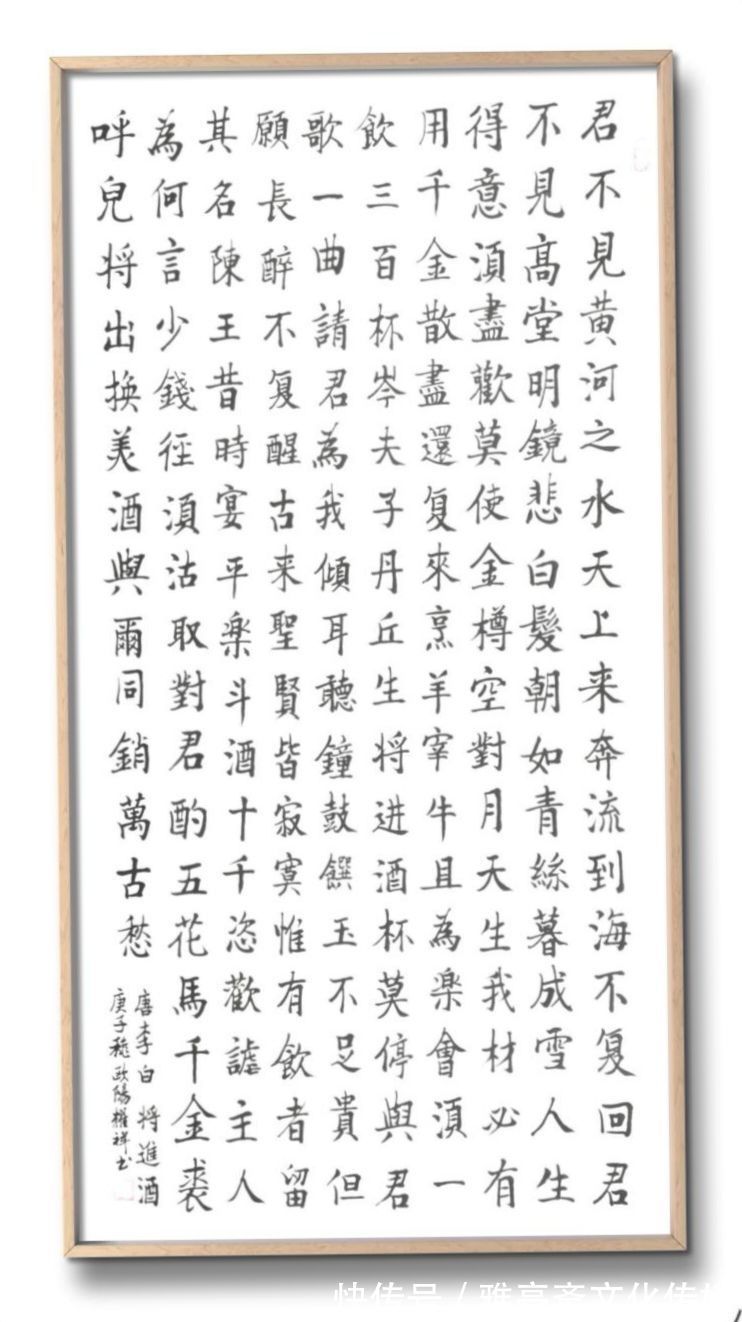 君不見黄河之水天上来奔流到海不复回君
不見髙堂明鏡悲白髮朝如青絲暮成雪人生
得意湏盡歡莫使金樽空對月天生我材必有
用千金散盡還复來烹羊宰牛且為楽會湏一
飲三百杯岑夫子丹丘生将进酒杯莫停與君
歌一曲請君為我傾耳聽鐘鼓饌玉不足貴但
願長醉不复醒古来聖賢皆寂寞惟有飲者留
其名陳王昔時宴平楽斗酒十千恣歡謔主人
為何言少錢径湏沽取對君酌五花馬千金裘
呼兒将出换美酒與爾同銷萬古愁
唐李白将進酒
庚子穐欧陽權祥书
快传号 / 斋文化传